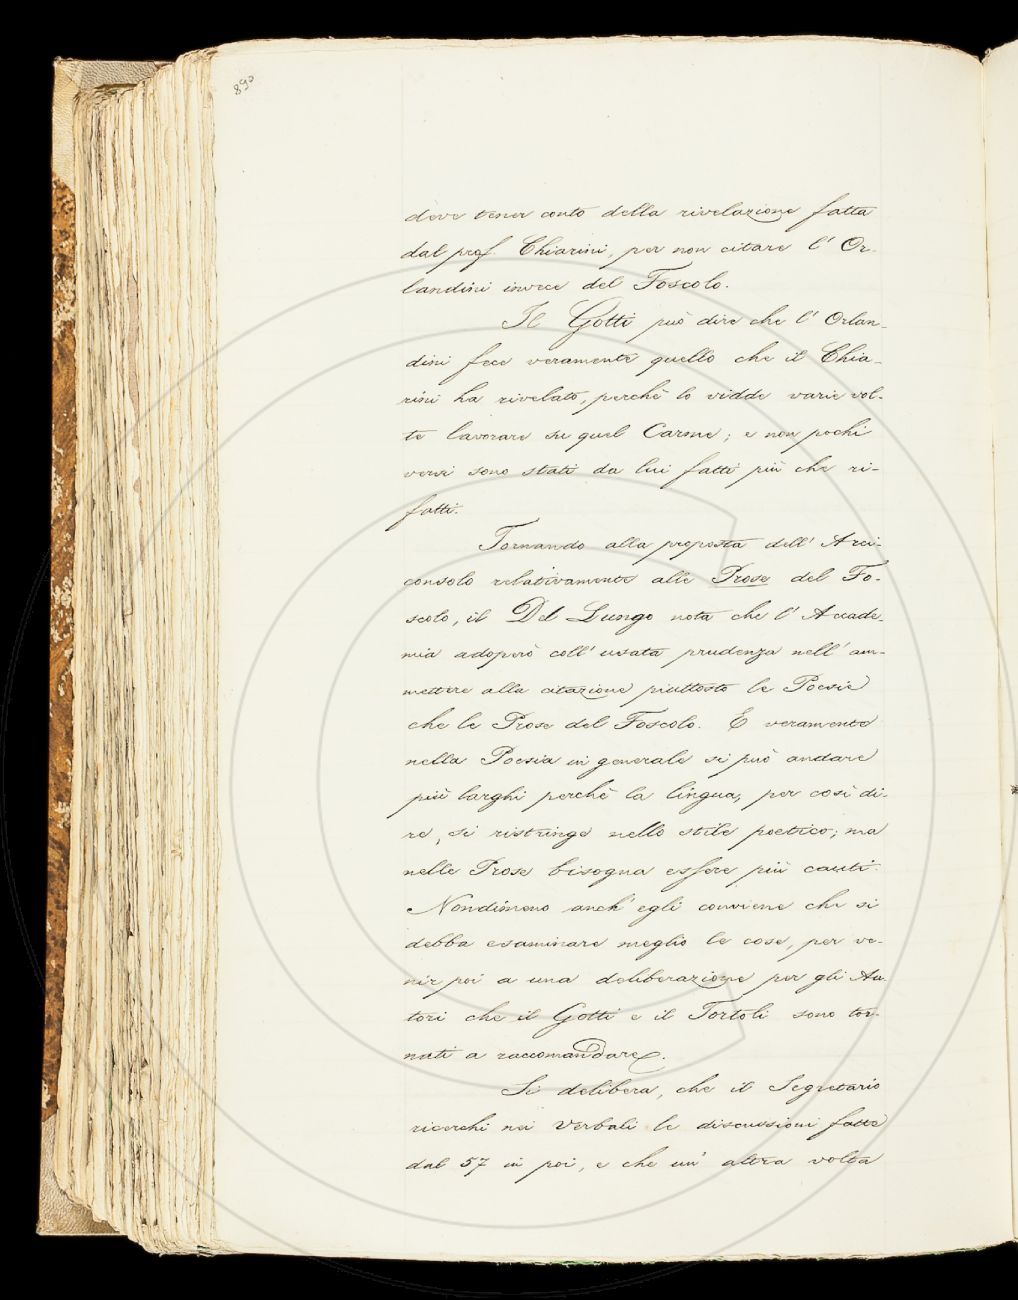 890
deve tener conto della rivelazione fatta
dal prof. Chiarini, per non citare l' Or-
landini invece del Foscolo.
Il Gotti può dire che l' Orlan-
dini fece veramente quello che il Chia-
rini ha rivelato, perché lo vidde varie vol-
te lavorare su quel Carme; e non pochi
versi sono stati da lui fatti più che ri-
fatti.
Tornando alla proposta dell' Arci-
consolo relativamente alle Prose del Fo-
scolo, il Del Lungo nota che l' Accade-
mia adoperò coll' usata prudenza nell' am-
mettere alla citazione piuttosto le Poesie
che le Prose del Foscolo. E veramente
nella Poesia in generale si può andare
più larghi perché la lingua, per così di-
re, si ristringe nello stile poetico; ma
nelle Prose bisogna essere più cauti.
Nondimeno anch' egli conviene che si
debba esaminare meglio le cose, per ve-
nir poi a una deliberazione per gli Au-
tori che il Gotti e il Tortoli sono tor-
nati a raccomandare.
Si delibera, che il Segretario
ricerchi nei Verbali le discussioni fatte
dal 57 in poi, e che un' altra volta